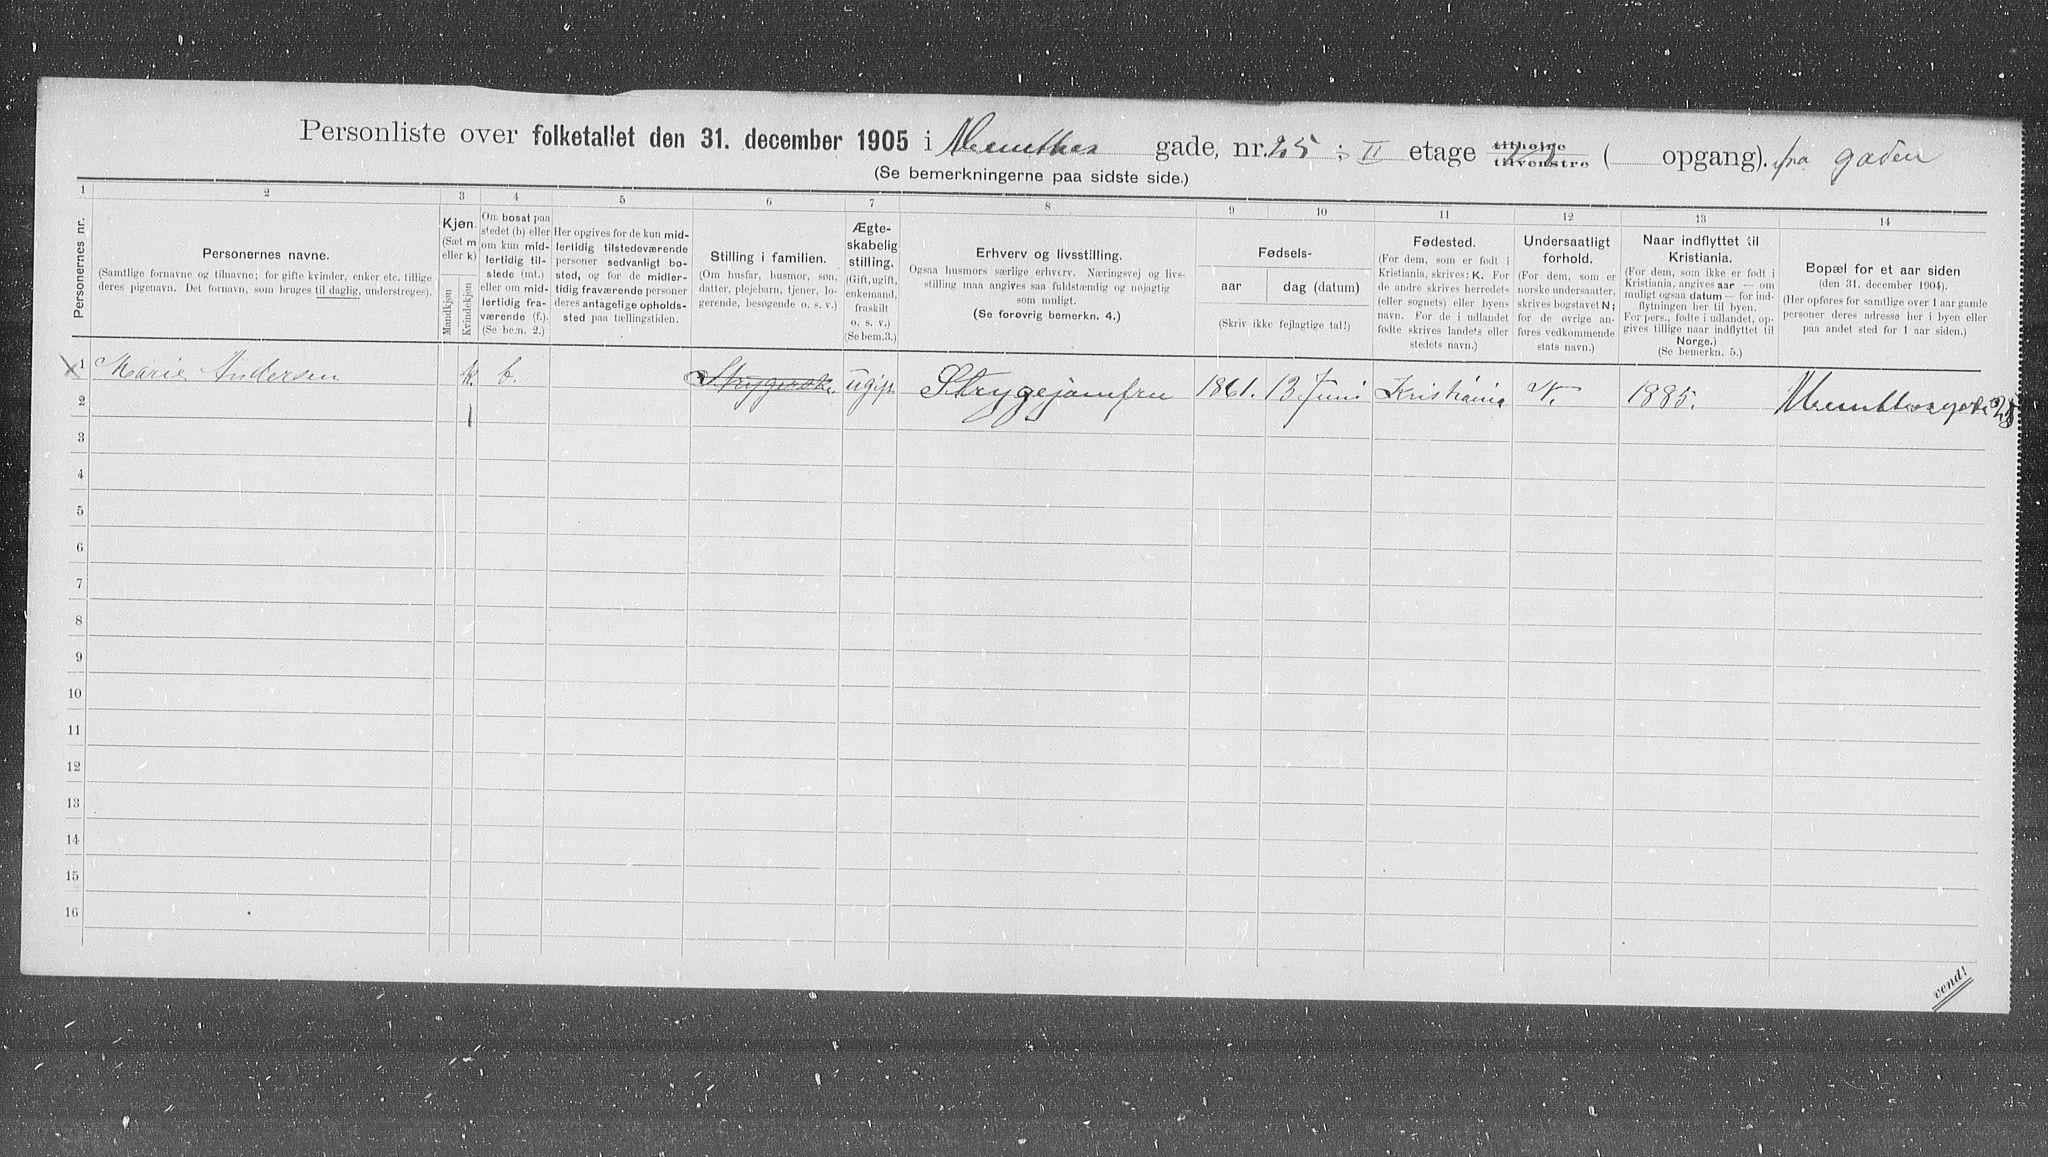 Personliste over folketallet den 31. december 1905 i Munthes gade, nr. 25 ; II etage tilhøire tilvenstre ( opgang). fra gaden
(Se bemerkningerne paa sidste side.)
1 2 3 4 5 6 7 8 9 10 11 12 13 14
Personernes nr.
Personernes navne.
(Samtlige fornavne og tilnavne; for gifte kvinder, enker etc. tillige
deres pigenavn. Det fornavn, som bruges til daglig, understreges).
Kjøn.
(Sæt m
eller k)
Mandkjøn
Kvindekjøn
Om bosat paa
stedet (b) eller
om kun mid-
lertidig til-
stede (mt.)
eller om mid-
lertidig fra-
værende (f.).
(Se bem. 2.)
Her opgives for de kun mid-
lertidig tilstedeværende
personer sedvanligt bo-
sted, og for de midler-
tidig fraværende personer
deres antagelige opholds-
sted paa tællingstiden.
Stilling i familien.
(Om husfar, husmor, søn,
datter, plejebarn, tjener, lo-
gerende, besøgende o. s. v.)
Ægte-
skabelig
stilling.
(Gift, ugift,
enkemand,
fraskilt
o. s. v.)
(Se bem.3.)
Erhverv og livsstilling.
Ogsaa husmors særlige erhverv. Næringsvej og livs-
stilling maa angives saa fuldstændig og nøjagtig
som muligt.
(Se forøvrig bemerkn. 4.)
Fødsels-
aar
dag (datum)
(Skriv ikke fejlagtige tal!)
Fødested.
(For dem, som er født i
Kristiania, skrives: K. For
de andre skrives herredets
(eller sognets) eller byens
navn. For de i udlandet
fødte skrives landets eller
stedets navn.)
Undersaatligt
forhold.
(For dem, som er
norske undersaatter,
skrives bogstavet N;
for de øvrige an-
føres vedkommende
stats navn.)
Naar indflyttet til
Kristiania.
(For dem, som ikke er født i
Kristiania, angives aar — om
muligt ogsaa datum — for ind-
flytningen her til byen.
For pers., fødte i udlandet, op-
gives tillige naar indflyttet til
Norge.)
(Se bemerkn. 5.)
Bopæl for et aar siden
(den 31. december 1904).
(Her opføres for samtlige over 1 aar gamle
personer deres adresse her i byen eller
paa andet sted for 1 aar siden.)
1 Marie Andersen k. b. ugift Strygejomfru 1861. 13 Juni Kristiania N. 1885. Munthesgade 25
2 1
3
4
5
6
7
8
9
10
11
12
13
14
15
16
vend!